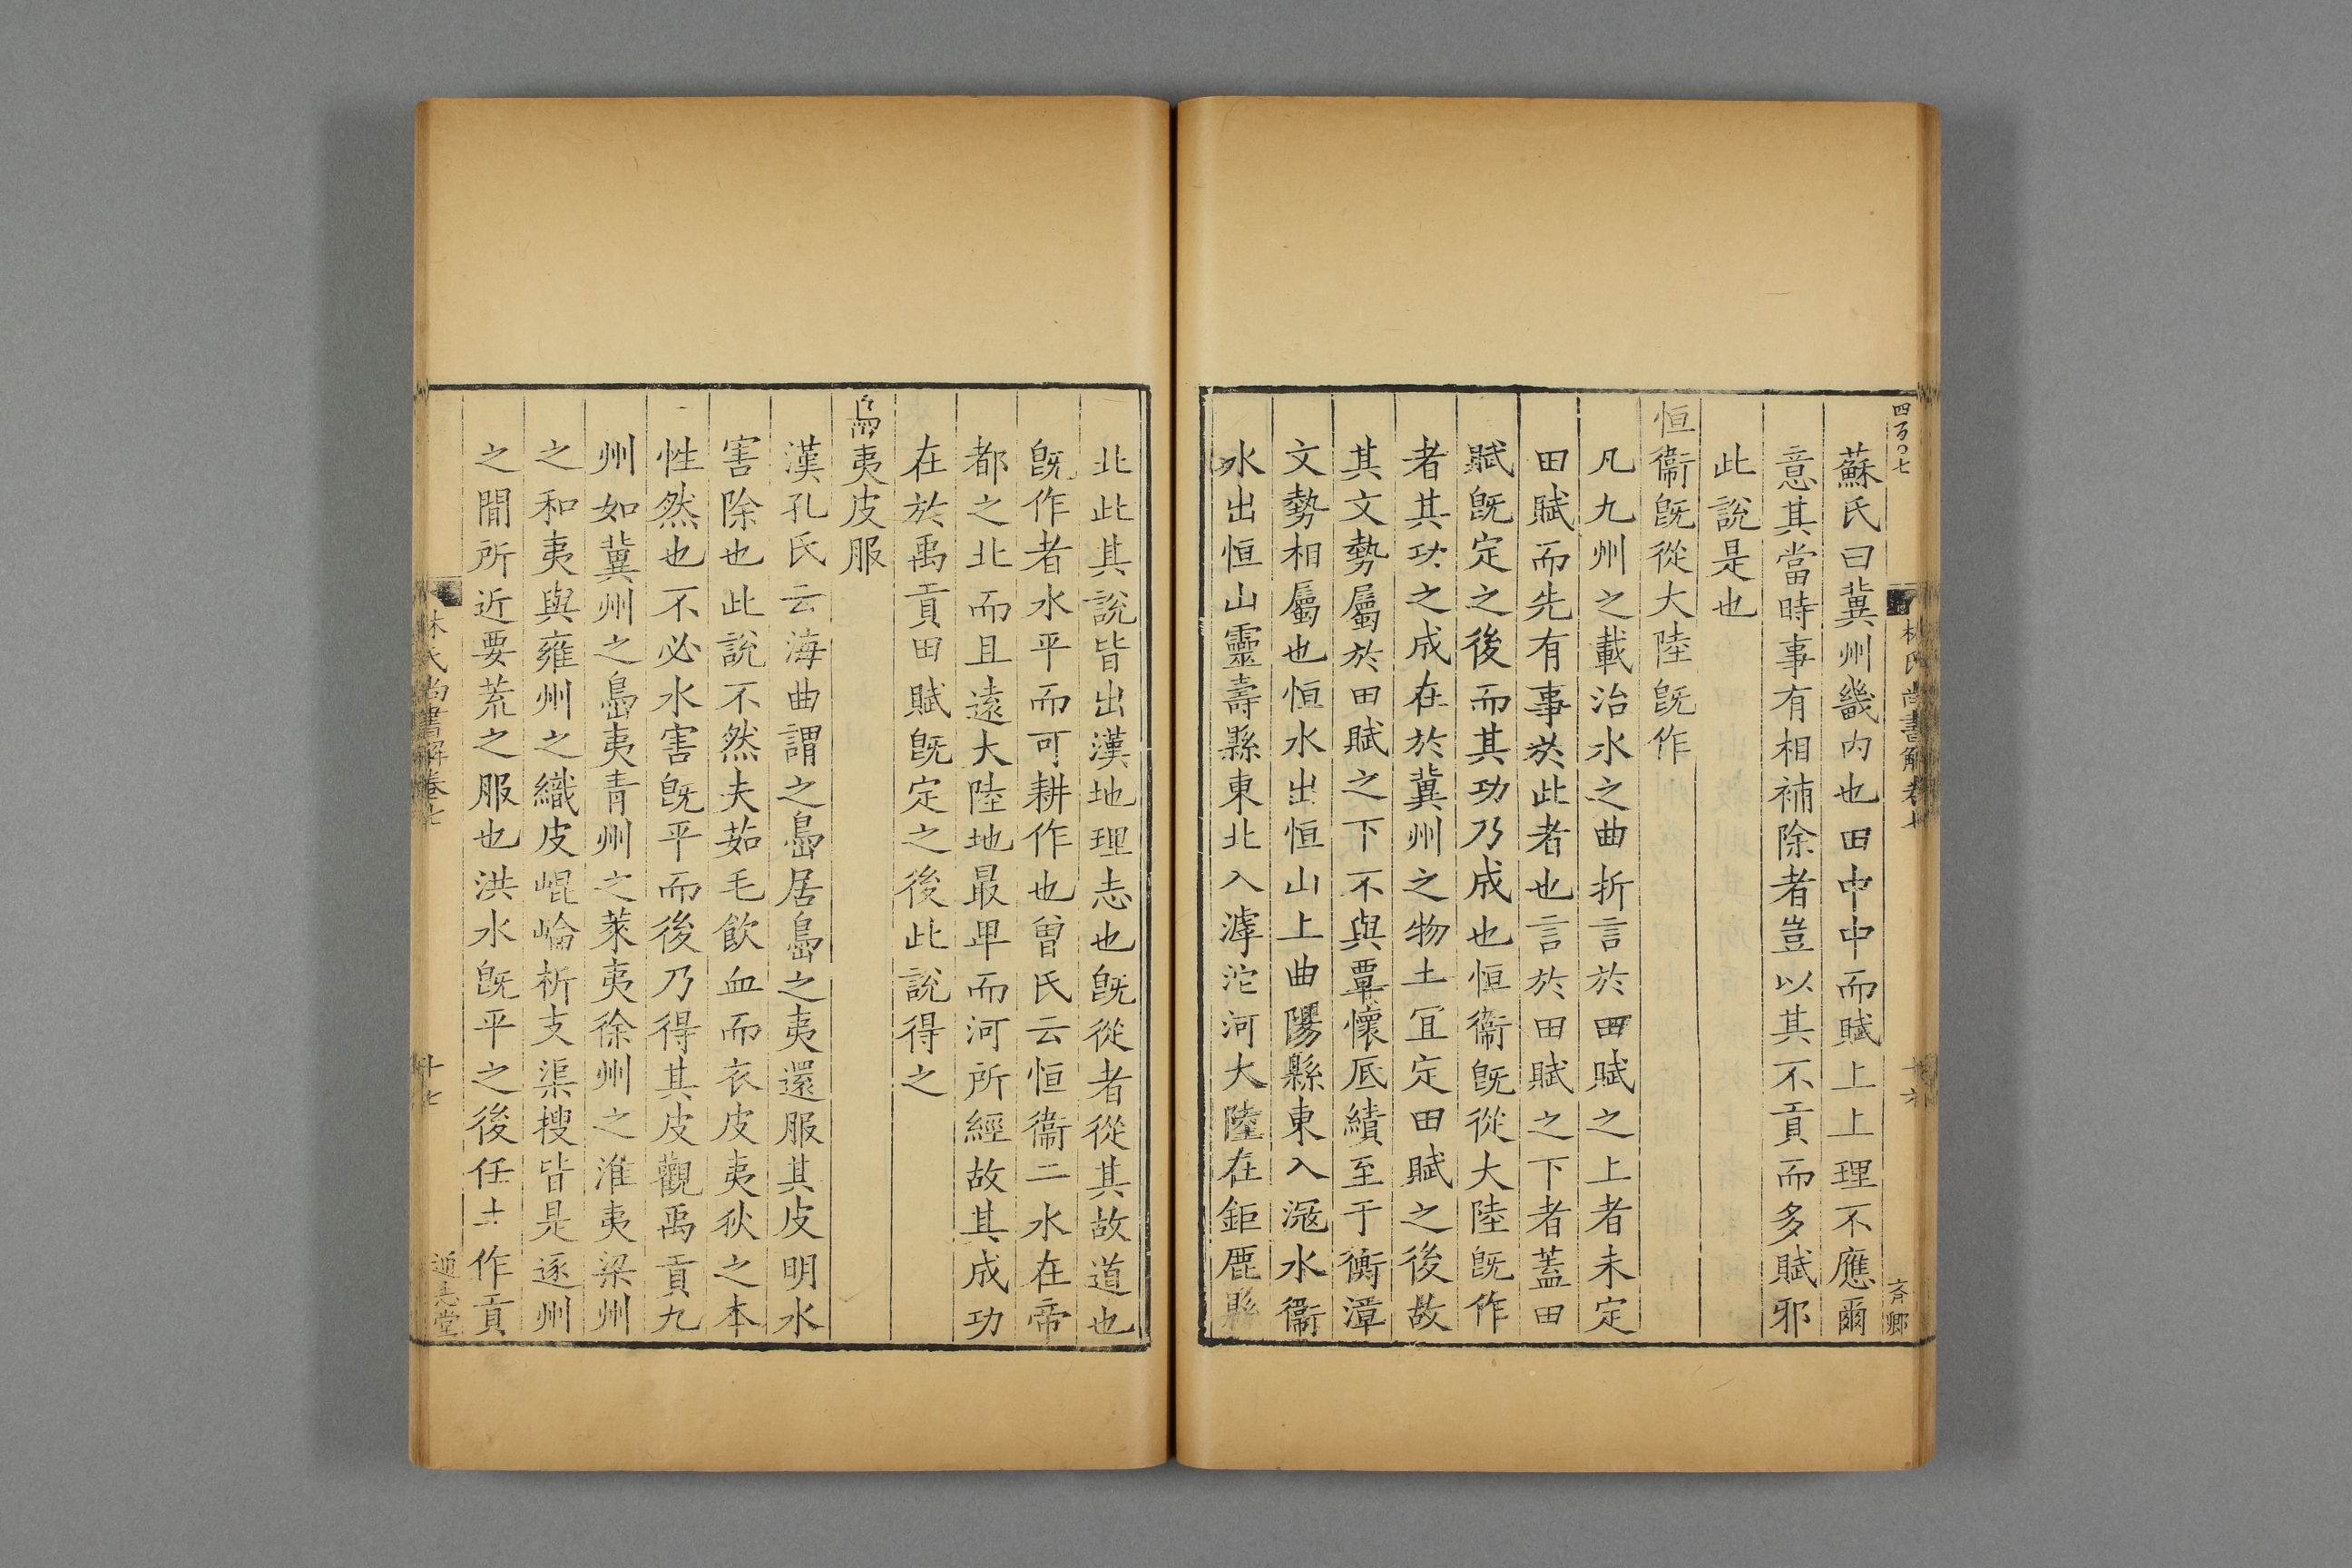 四百〇七
林氏尚書解卷七
十六
蘇氏曰冀州畿内也田中中而賦上上理不應爾
意其當時事有相補除者豈以其不貢而多賦邪
此說是也
恒衞旣從大陸旣作
凡九州之載治水之曲折言於田賦之上者未定
田賦而先有事於此者也言於田賦之下者蓋田
賦旣定之後而其功乃成也恒衞旣從大陸旣作
者其功之成在於冀州之物土冝定田賦之後故
其文勢屬於田賦之下不與覃懷厎績至于衡漳
文勢相屬也恒水出恒山上曲陽縣東入滱水衞
水出恒山靈壽縣東北入滹沱河大陸在鉅鹿縣
北此其說皆出漢地理志也旣從者從其故道也
旣作者水平而可耕作也曾氏云恒衞二水在帝
都之北而且遠大陸地最卑而河所經故其成功
在於禹貢田賦旣定之後此說得之
島夷皮服
漢孔氏云海曲謂之島居島之夷還服其皮明水
害除也此說不然夫茹毛飲血而衣皮夷狄之本
性然也不必水害旣平而後乃得其皮觀禹貢九
州如冀州之島夷青州之萊夷徐州之淮夷梁州
之和夷與雍州之織皮崐崘析支渠搜皆是逐州
之間所近要荒之服也洪水旣平之後任土作貢
林氏尚書解卷七
十七
通志堂